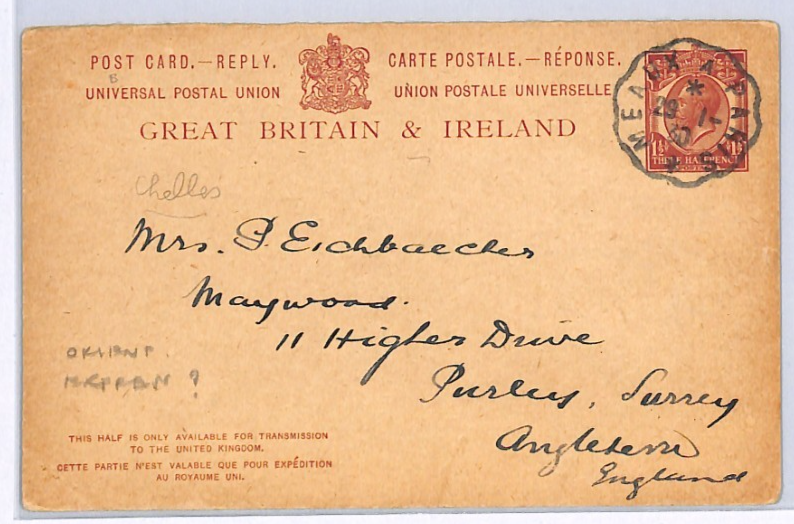 POST CARD.—REPLY. CARTE POSTALE.—RÉPONSE.
UNIVERSAL POSTAL UNION UNION POSTALE UNIVERSELLE
GREAT BRITAIN & IRELAND
MEAUX A PARIS
28
1½ 1½
THREE HALFPENCE
Chelles
Mrs. P. Eichbaecher
Maywood.
11 Higher Drive
Purley, Surrey
Angleterre
England
ORIENT
THIS HALF IS ONLY AVAILABLE FOR TRANSMISSION
TO THE UNITED KINGDOM.
CETTE PARTIE N'EST VALABLE QUE POUR EXPÉDITION
AU ROYAUME UNI.